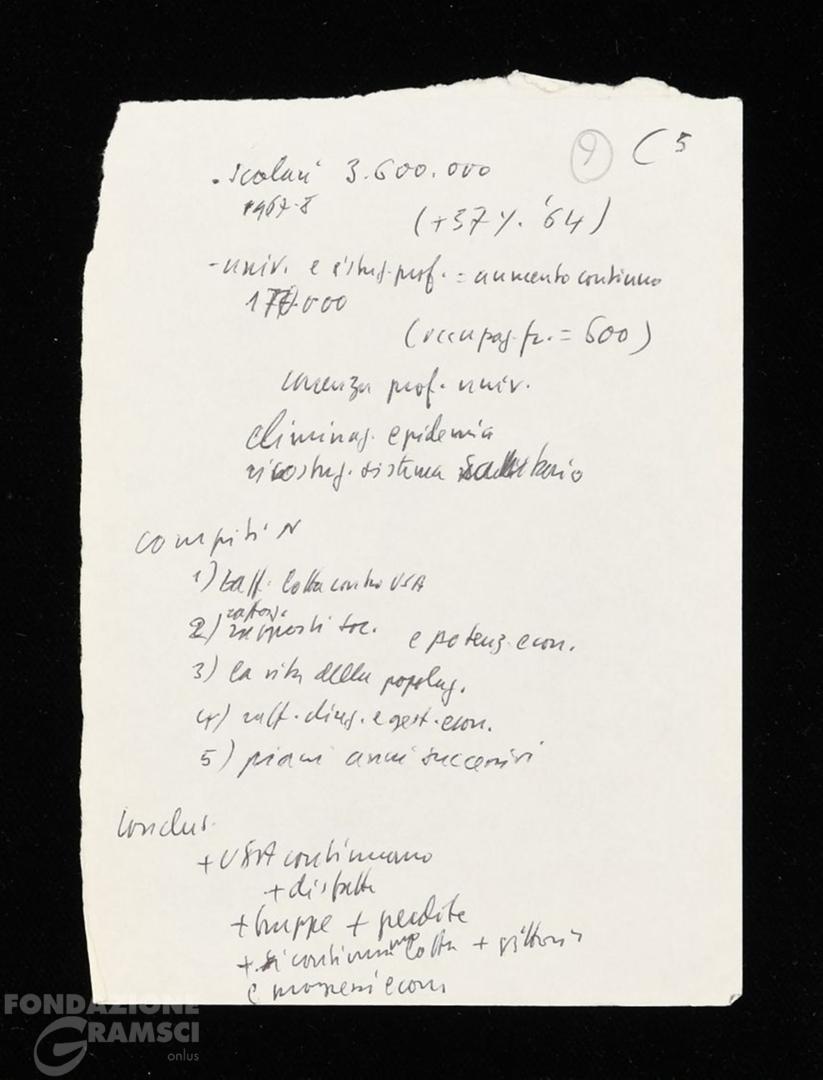 9 (5
. scolari 3.600.000
1967-8 (+37%. '64)
- univ. e istruz. prof. = aumento continuo
000
(occupaz. fr. = 600)
prof. univ.
eliminaz. epidemia
ricostruz. sistema sanitario
compiti N
1) batt. lotta contro USA
2) rafforz. rapporti soc. e potenz. econ.
3) la vita della popolaz.
4) raff. direz. e gest. econ.
5) piani anni successivi
Conclus.
+ USA continuano
+ disfatte
+ truppe + perdite
+ si continua lotta + vittoria
e progressi econ
FONDAZIONE
GRAMSCI
onlus